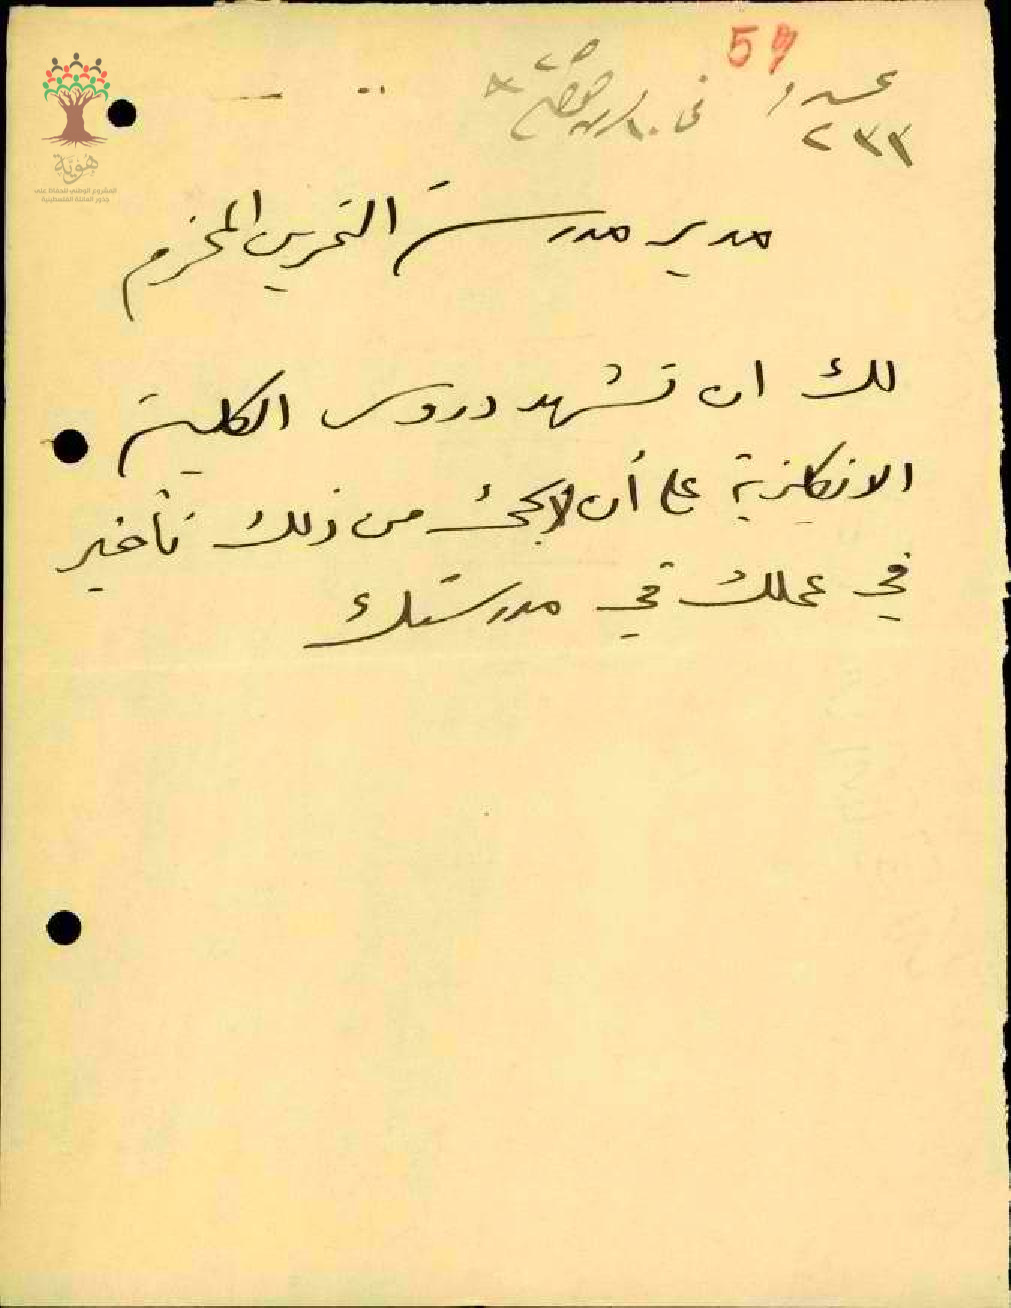 57
٢٣٣
هوية
المشروع الوطني للحفاظ على
جذور العائلة الفلسطينية
مدير مدرسة التمرين المحترم
لك ان تشهد دروس الكلية
الانكليزية على أن لا يجئ من ذلك تأخير
في عملك في مدرستك